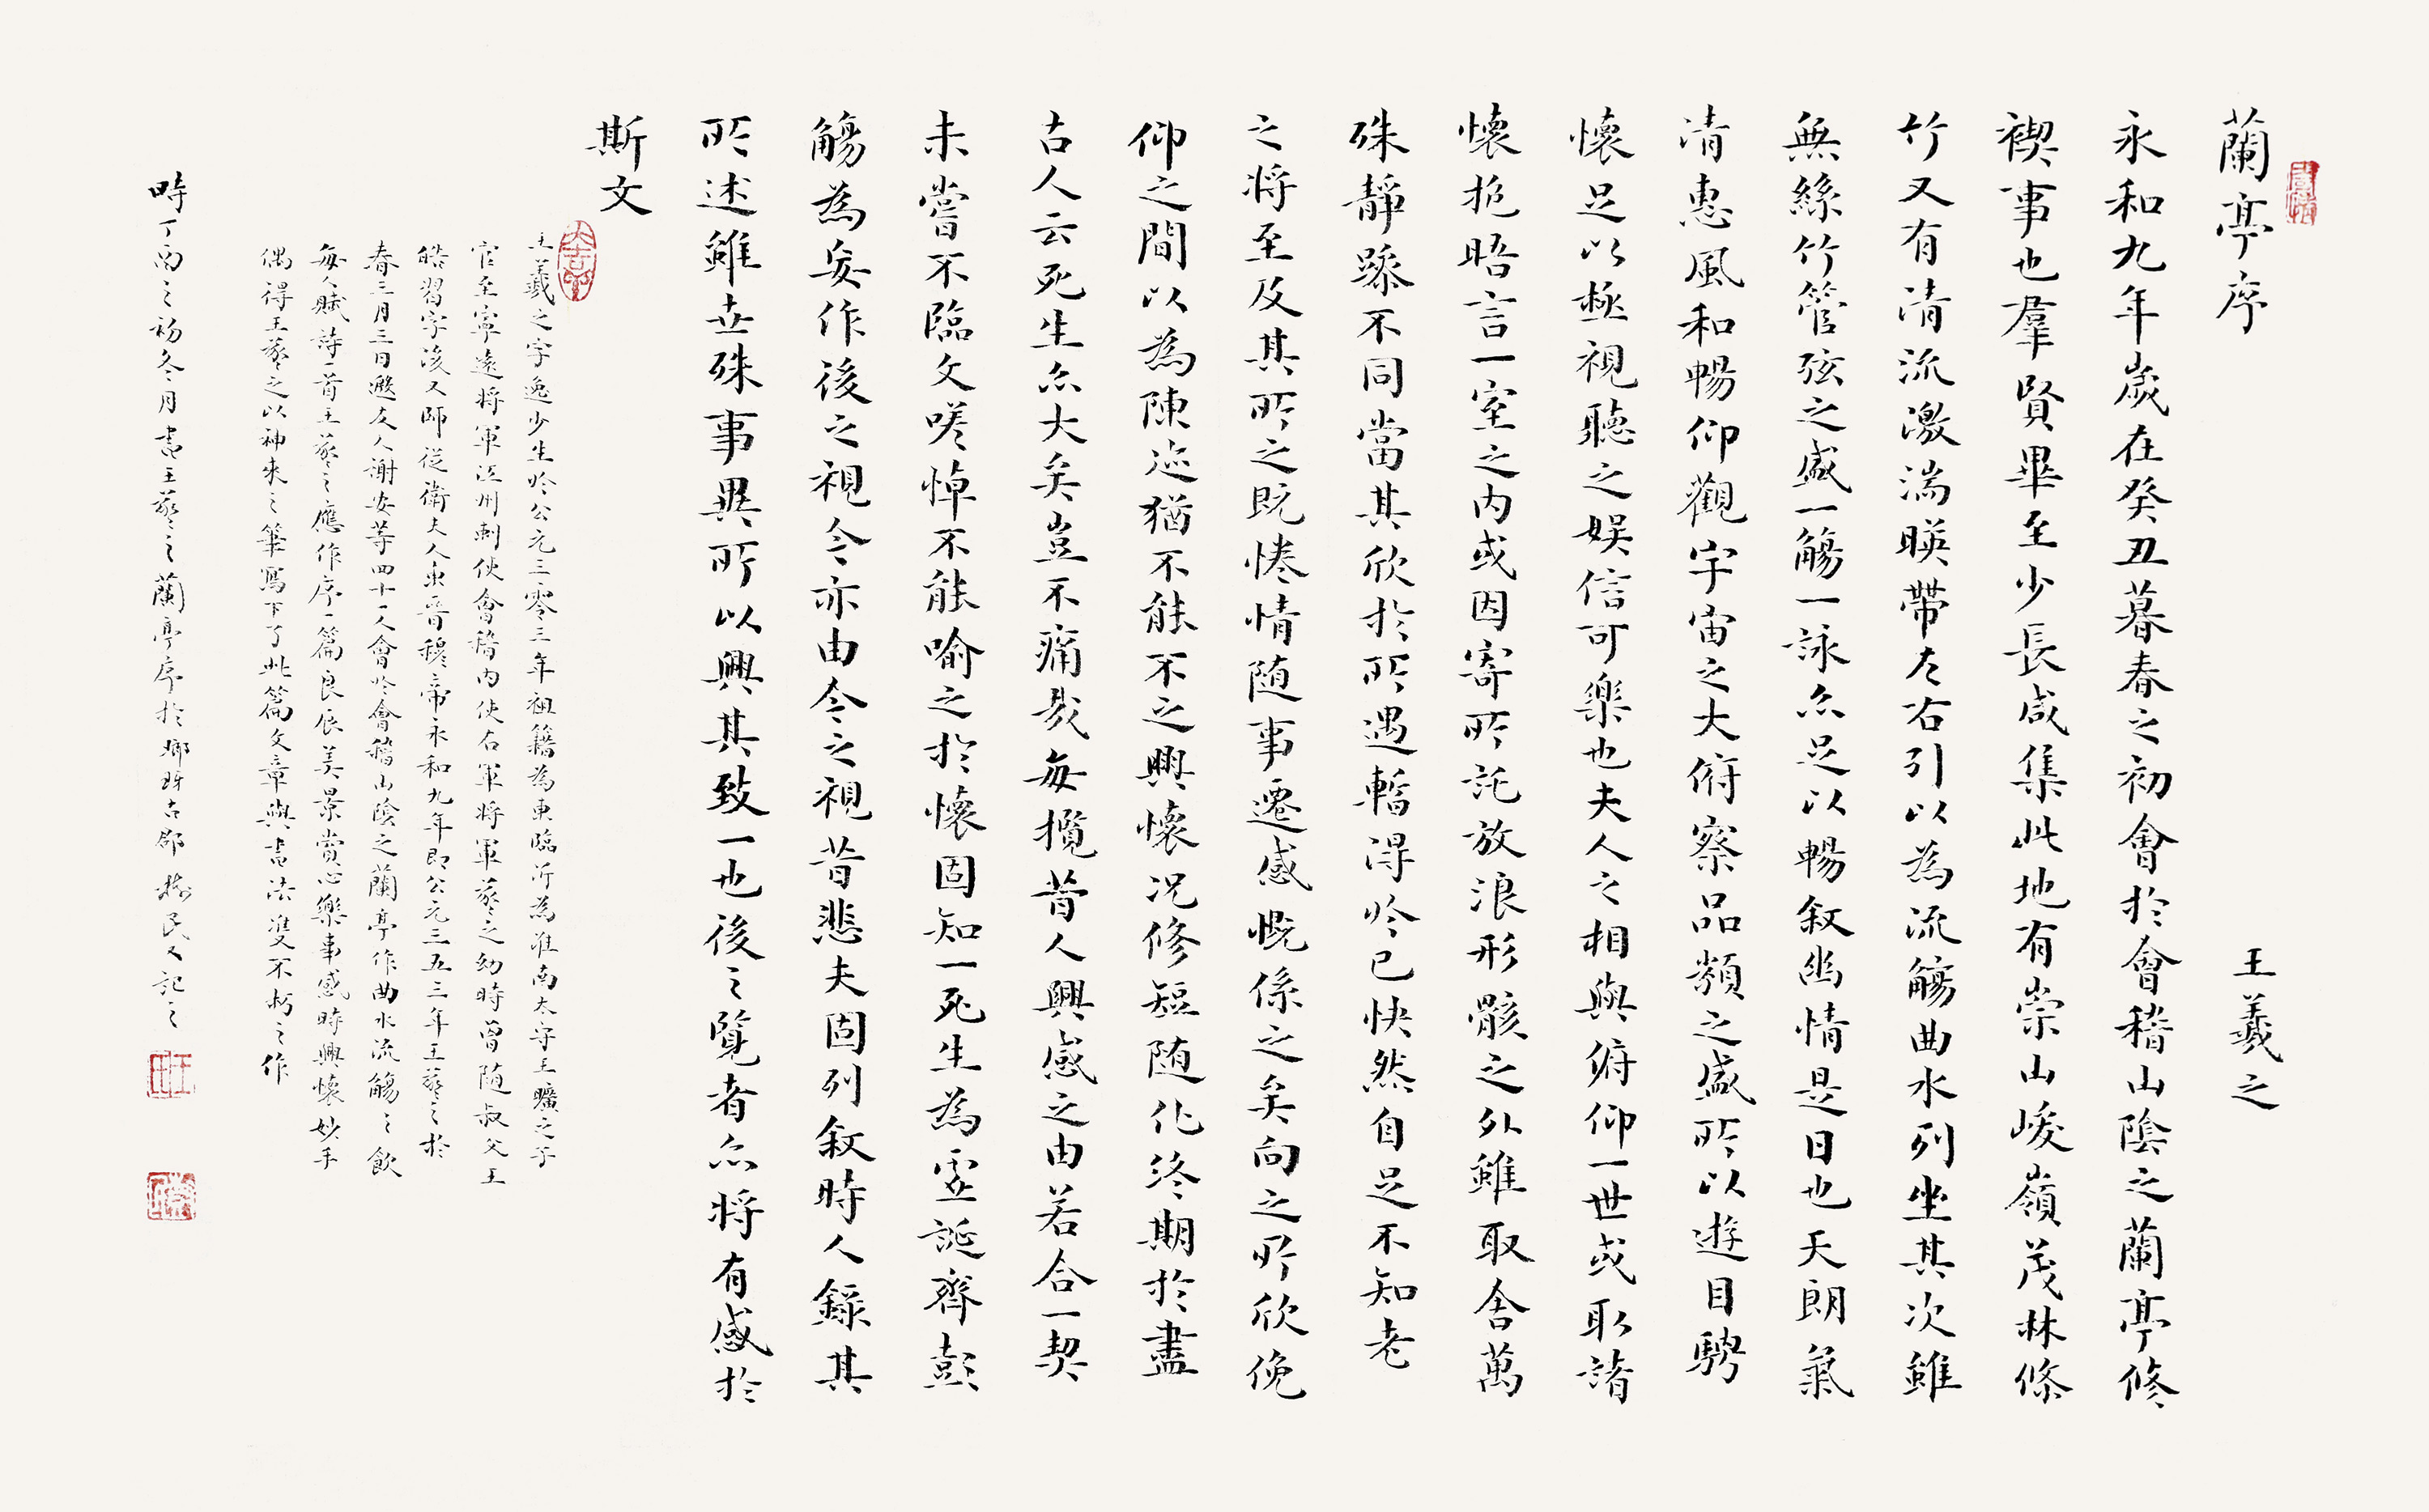 蘭亭序
王羲之
永和九年歲在癸丑暮春之初會於會稽山陰之蘭亭修
禊事也羣賢畢至少長咸集此地有崇山峻嶺茂林條
竹又有清流激湍暎帶左右引以為流觴曲水列坐其次雖
無絲竹管弦之盛一觴一詠亦足以暢敘幽情是日也天朗氣
清惠風和暢仰觀宇宙之大俯察品類之盛所以遊目騁
懷足以極視聽之娛信可樂也夫人之相與俯仰一世或取諸
懷抱晤言一室之內或因寄所託放浪形骸之外雖取舍萬
殊靜躁不同當其欣於所遇暫得於己快然自足不知老
之將至及其所之既惓情随事遷感慨係之矣向之所欣俛
仰之間以為陳迹猶不能不之興懷況修短随化終期於盡
古人云死生亦大矣豈不痛哉每攬昔人興感之由若合一契
未嘗不臨文嗟悼不能喻之於懷固知一死生為虛誕齊彭
觴為妄作後之視今亦由今之視昔悲夫固列敘時人錄其
所述雖世殊事異所以興其致一也後之覽者亦將有感於
斯文
王羲之字逸少生於公元三零三年祖籍為東臨沂為淮南太守王曠之子
官至寧遠將軍江州刺使會稽內使右軍將軍羲之幼時曾随叔父王
皓習字後又師從衛夫人東晉穆帝永和九年即公元三五三年王羲之於
春三月三日邀友人謝安等四十一人會於會稽山陰之蘭亭作曲水流觴之飲
每人賦詩一首王羲之應作序一篇良辰美景賞心樂事感時興懷妙手
偶得王羲之以神來之筆寫下了此篇文章與書法雙不朽之作
時丁酉之初冬月書王羲之蘭亭序於瑯琊古郡 民又記之